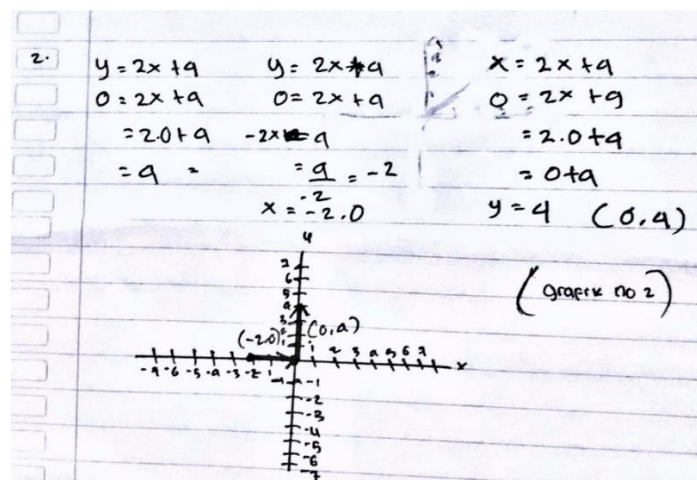 2.
y = 2x + 4
0 = 2x + 4
= 2.0 + 4
= 4 =
y = 2x + 4
0 = 2x + 4
-2x = 4
= 4/-2 = -2
x = -2.0
x = 2x + 4
0 = 2x + 4
= 2.0 + 4
= 0 + 4
y = 4 (0,4)
(Grafik no 2)
y
7
6
5
4
3
2
1
(-2.0)
(0,4)
-7 -6 -5 -4 -3 -2 -1 1 2 3 4 5 6 7 x
-1
-2
-3
-4
-5
-6
-7